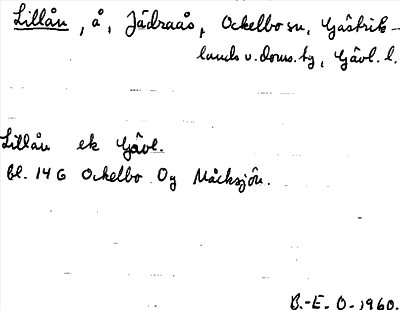 Lillån, å, Jädraås, Ockelbo sn, Gästrik-
lands v. doms. hg, Gävl. l.
Lillån ek Gävl.
Bl. 14 G Ockelbo Og Måcksjön.
B.-E. O. 1960.